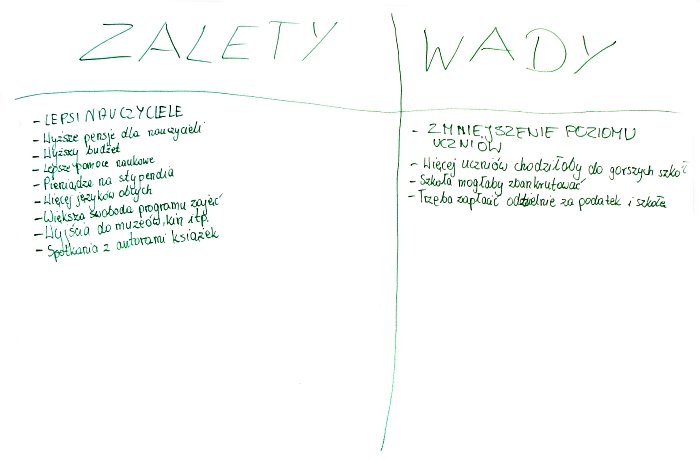 ZALETY
- LEPSI NAUCZYCIELE
- Wyższe pensje dla nauczycieli
- Wyższy budżet
- Lepsze pomoce naukowe
- Pieniądze na stypendia
- Więcej języków obcych
- Większa swoboda programu zajęć
- Wyjścia do muzeów, kin itp.
- Spotkania z autorami książek
WADY
- ZMNIEJSZENIE POZIOMU
UCZNIÓW
- Więcej uczniów chodziłoby do gorszych szkół
- Szkoła mogłaby zbankrutować
- Trzeba zapłacić oddzielnie za podatek i szkołę